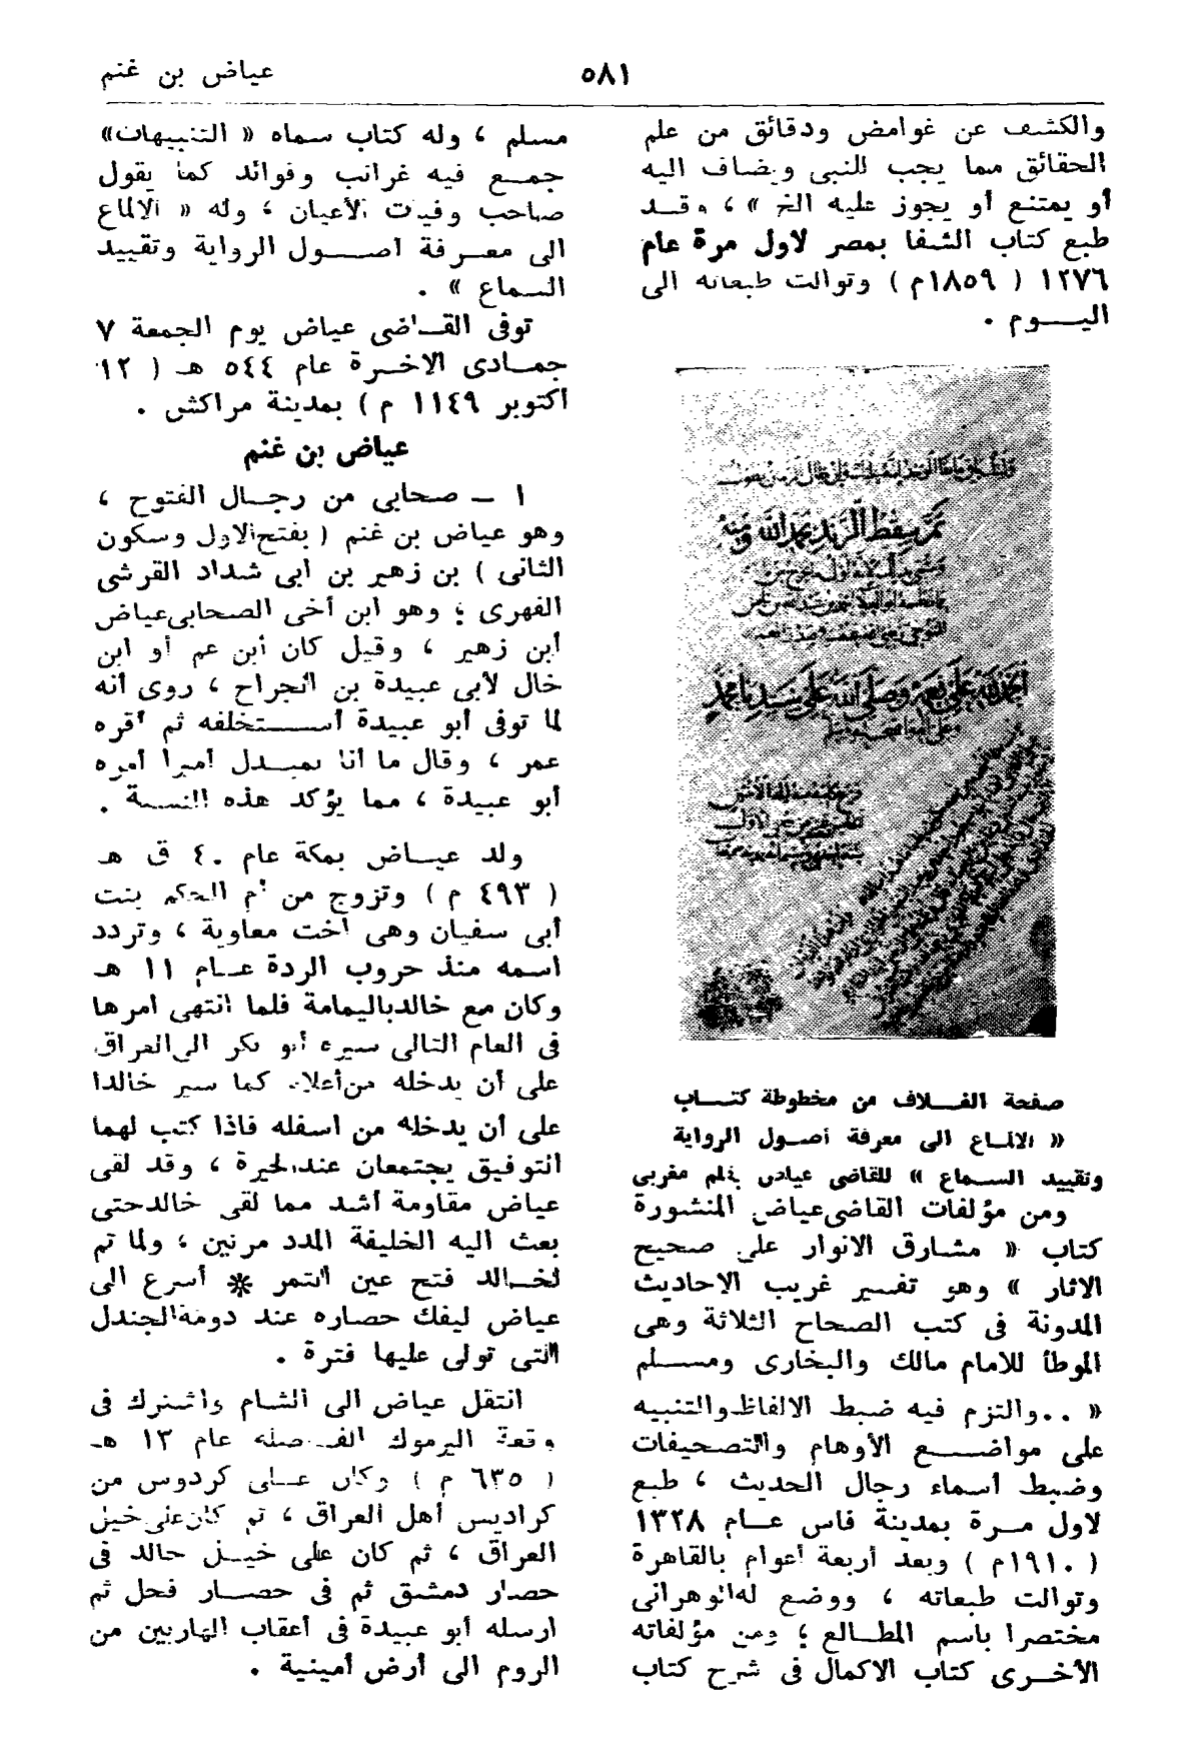 عياض بن غنم
٥٨١
والكشف عن غوامض ودقائق من علم
الحقائق مما يجب للنبى ويضاف اليه
أو يمتنع أو يجوز عليه الخ » ، وقد
طبع كتاب الشفا بمصر لاول مرة عام
١٢٧٦ ( ١٨٥٩م ) وتوالت طبعاته الى
اليوم .
صفحة الغلاف من مخطوطة كتاب
« الالماع الى معرفة أصول الرواية
وتقييد السماع » للقاضى عياض بقلم مغربى
ومن مؤلفات القاضى عياض المنشورة
كتاب « مشارق الانوار على صحيح
الاثار » وهو تفسير غريب الاحاديث
المدونة فى كتب الصحاح الثلاثة وهى
الموطأ للامام مالك والبخارى ومسلم
« ..والتزم فيه ضبط الالفاظ والتنبيه
على مواضع الأوهام والتصحيفات
وضبط أسماء رجال الحديث ، طبع
لاول مرة بمدينة فاس عام ١٣٢٨
( ١٩١٠م ) وبعد أربعة أعوام بالقاهرة
وتوالت طبعاته ، ووضع له الوهرانى
مختصرا باسم المطالع ؛ ومن مؤلفاته
الأخرى كتاب الاكمال فى شرح كتاب
مسلم ، وله كتاب سماه « التنبيهات»
جمع فيه غرائب وفوائد كما يقول
صاحب وفيات الأعيان ، وله « الالماع
الى معرفة اصول الرواية وتقييد
السماع » .
توفى القاضى عياض يوم الجمعة ٧
جمادى الاخرة عام ٥٤٤ هـ ( ١٢
أكتوبر ١١٤٩ م ) بمدينة مراكش .
عياض بن غنم
١ – صحابى من رجال الفتوح ،
وهو عياض بن غنم ( بفتح الاول وسكون
الثانى ) بن زهير بن أبى شداد القرشى
الفهرى ؛ وهو ابن أخى الصحابى عياض
أبن زهير ، وقيل كان أبن عم أو ابن
خال لأبى عبيدة بن الجراح ، روى أنه
لما توفى أبو عبيدة أستخلفه ثم أقره
عمر ، وقال ما أنا بمبدل أميرا أمره
أبو عبيدة ، مما يؤكد هذه النسبة .
ولد عياض بمكة عام ٤٠ ق هـ
( ٤٩٣ م ) وتزوج من أم الحكم بنت
أبى سفيان وهى أخت معاوية ، وتردد
اسمه منذ حروب الردة عام ١١ هـ
وكان مع خالد باليمامة فلما انتهى أمرها
فى العام التالى سيره أبو بكر الى العراق
على أن يدخله من أعلاه كما سير خالدا
على أن يدخله من أسفله فاذا كتب لهما
التوفيق يجتمعان عند الحيرة ، وقد لقى
عياض مقاومة أشد مما لقى خالد حتى
بعث اليه الخليفة المدد مرتين ، ولما تم
لخالد فتح عين التمر * أسرع الى
عياض ليفك حصاره عند دومة الجندل
التى تولى عليها فترة .
انتقل عياض الى الشام واشترك فى
وقعة اليرموك الفاصلة عام ١٣ هـ
( ٦٣٥ م ) وكان على كردوس من
كراديس أهل العراق ، ثم كان على خيل
العراق ، ثم كان على خيل خالد فى
حصار دمشق ثم فى حصار فحل ثم
ارسله أبو عبيدة فى أعقاب الهاربين من
الروم الى أرض أمينية .